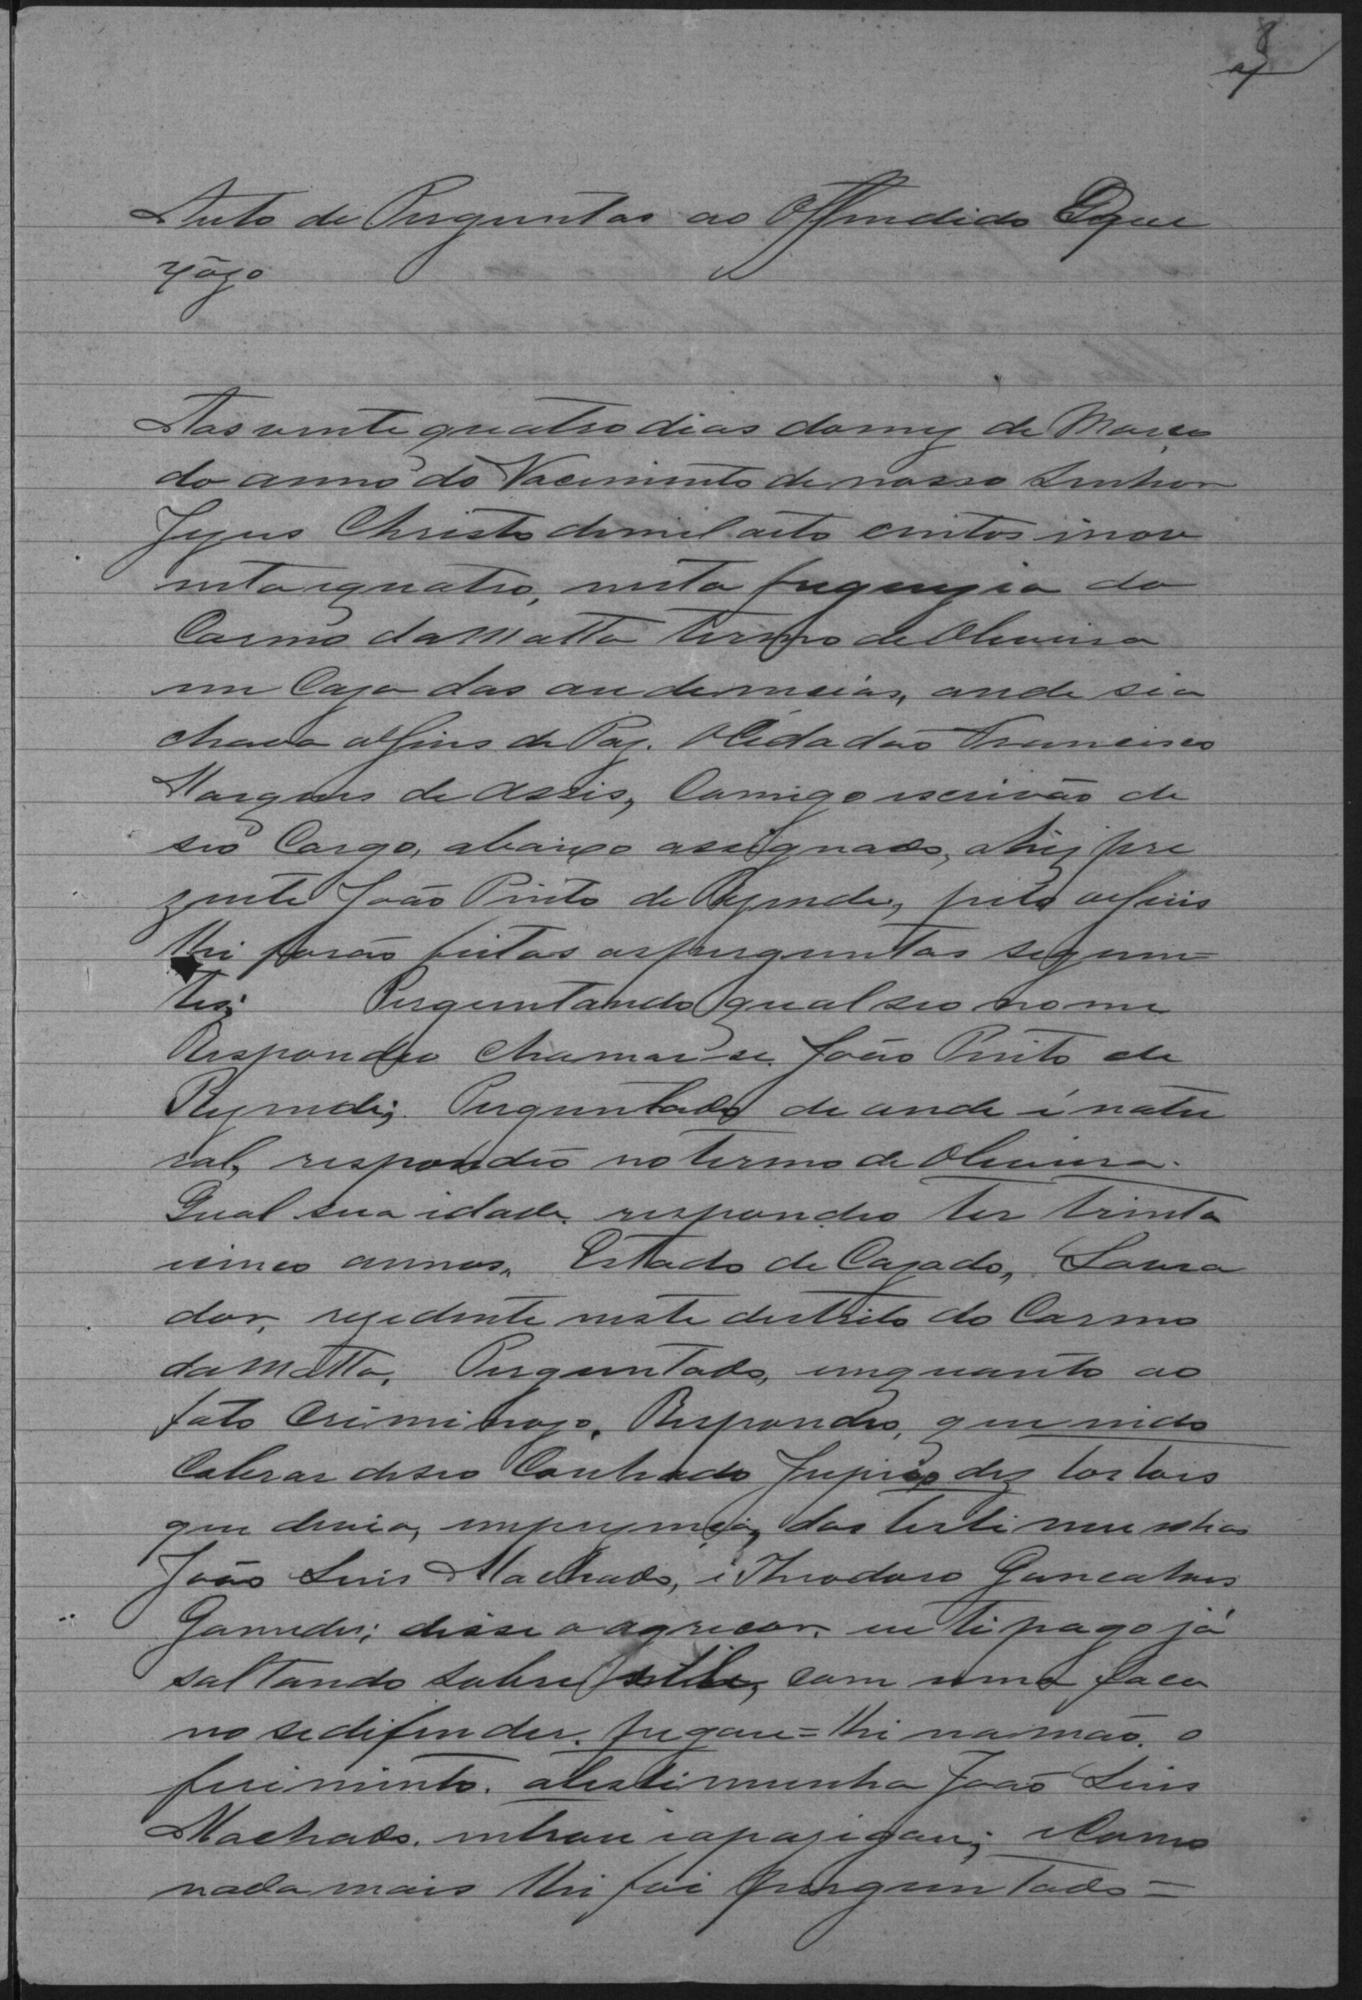 8
Auto de Perguntas ao Offendido Eque
xôzo
Aos vinte quatro dias domez de Março
do anno do Nacimento de nosso Senhor
Jezus Christo demil aito centos inove
ntaiquatro, nesta freguezia do
Carmo da Matta termo de Oliveira
em Caza das audiencias, ande sia
chava oJuis de Paz. oCidadão Francisco
Marques de Assis, Comigo iscrivão de
seo Cargo, abaixo assignado, ahiz pre
zente João Pinto de Rezende, pelo oJuis
lhi forão feitas asperguntas seguin=
tes; Perguntando qual seo nome
Respondeo chamar-se João Pinto de
Rezende; Perguntado de ande é natu
ral, respondeo no termo de Oliveira.
Qual sua idade. respondeo ter trinta
icinco annos, Estado de Cazado, Lavra
dor, rezedente neste destrito do Carmo
da Matta, Perguntado, enquanto ao
fato Criminozo. Respondeo, que indo
Cobrar deseo Cunhado dez tostois
que devia, emprezença das testimunhas
João Luis Machado, i Theodoro Goncalves
; disse o agreçor. eu ti pago já
saltando sobre elle, com uma faca
no sedifender. pegou=lhi namão. o
ferimento. atestimunha João Luis
Machado. entrou iapazigou; eComo
nada mais lhi foi perguntado=